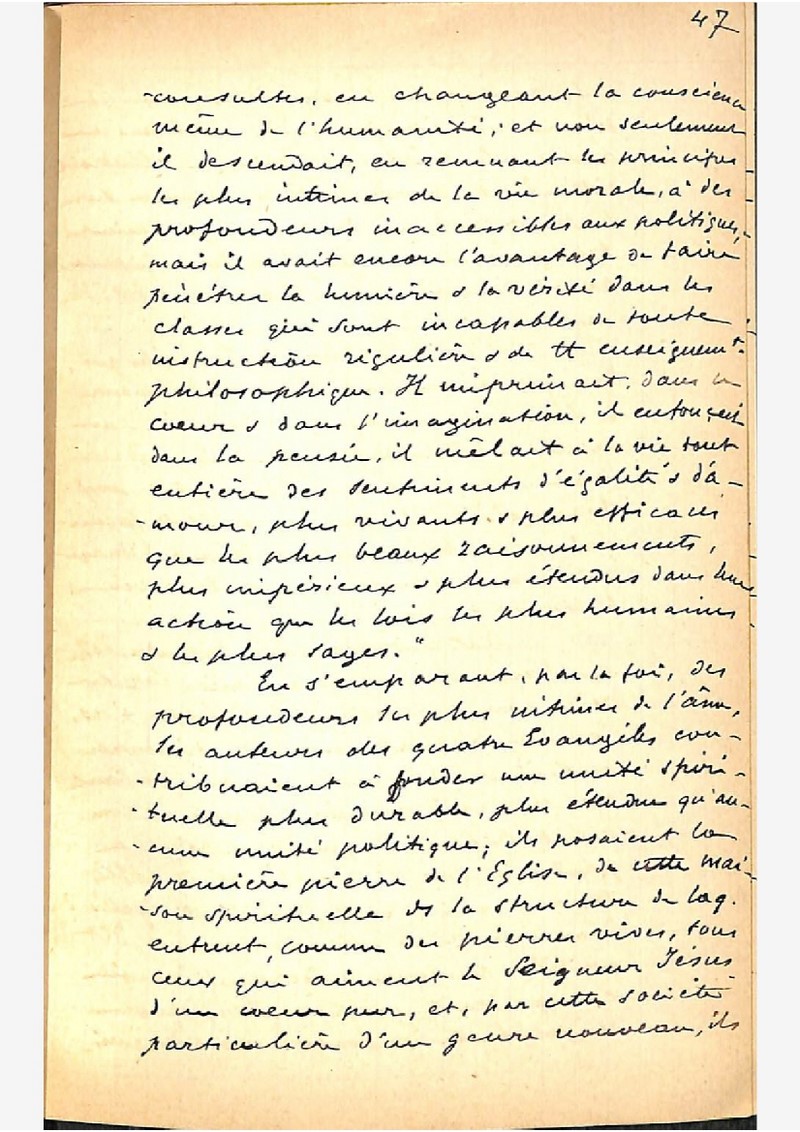 47
-consultes, en changeant la conscience
même de l'humanité; et non seulement
il descendait, en remuant les principes
les plus intimes de la vie morale, à des
profondeurs inaccessibles aux politiques,
mais il avait encore l'avantage de faire
pénétrer la lumière & la vérité dans les
classes qui sont incapables de toute
instruction régulière & de tt enseignemt
philosophique. Il imprimait, dans le
coeur & dans l'imagination, il enfonçait
dans la pensée, il mêlait à la vie tout
entière des sentiments d'égalité & d'a-
-mour, plus vivants & plus efficaces
que les plus beaux raisonnements,
plus impérieux & plus étendus dans leur
action que les lois les plus humaines
& les plus sages."
En s'emparant, par la foi, des
profondeurs les plus intimes de l'âme,
les auteurs des quatre Evangiles con-
-tribuaient à fonder une unité spiri-
-tuelle plus durable, plus étendue qu'au-
-cune unité politique; ils posaient la
première pierre de l'Eglise, de cette mai-
-son spirituelle ds la structure de laq.
entrent, comme des pierres vives, tous
ceux qui aiment le Seigneur Jésus
d'un coeur pur, et, par cette société
particulière d'un genre nouveau, ils